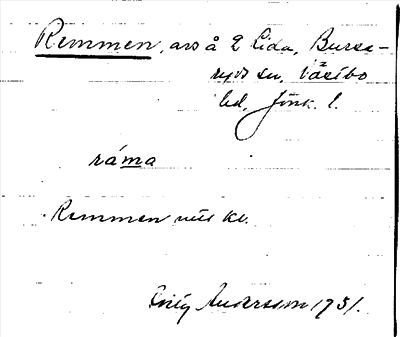 Remmen, avs å 2 Lida, Burse-
ryds sn, Västbo
hd, Jönk. l.
ráma
Remmen min kv.
Emly Andersson 1931.